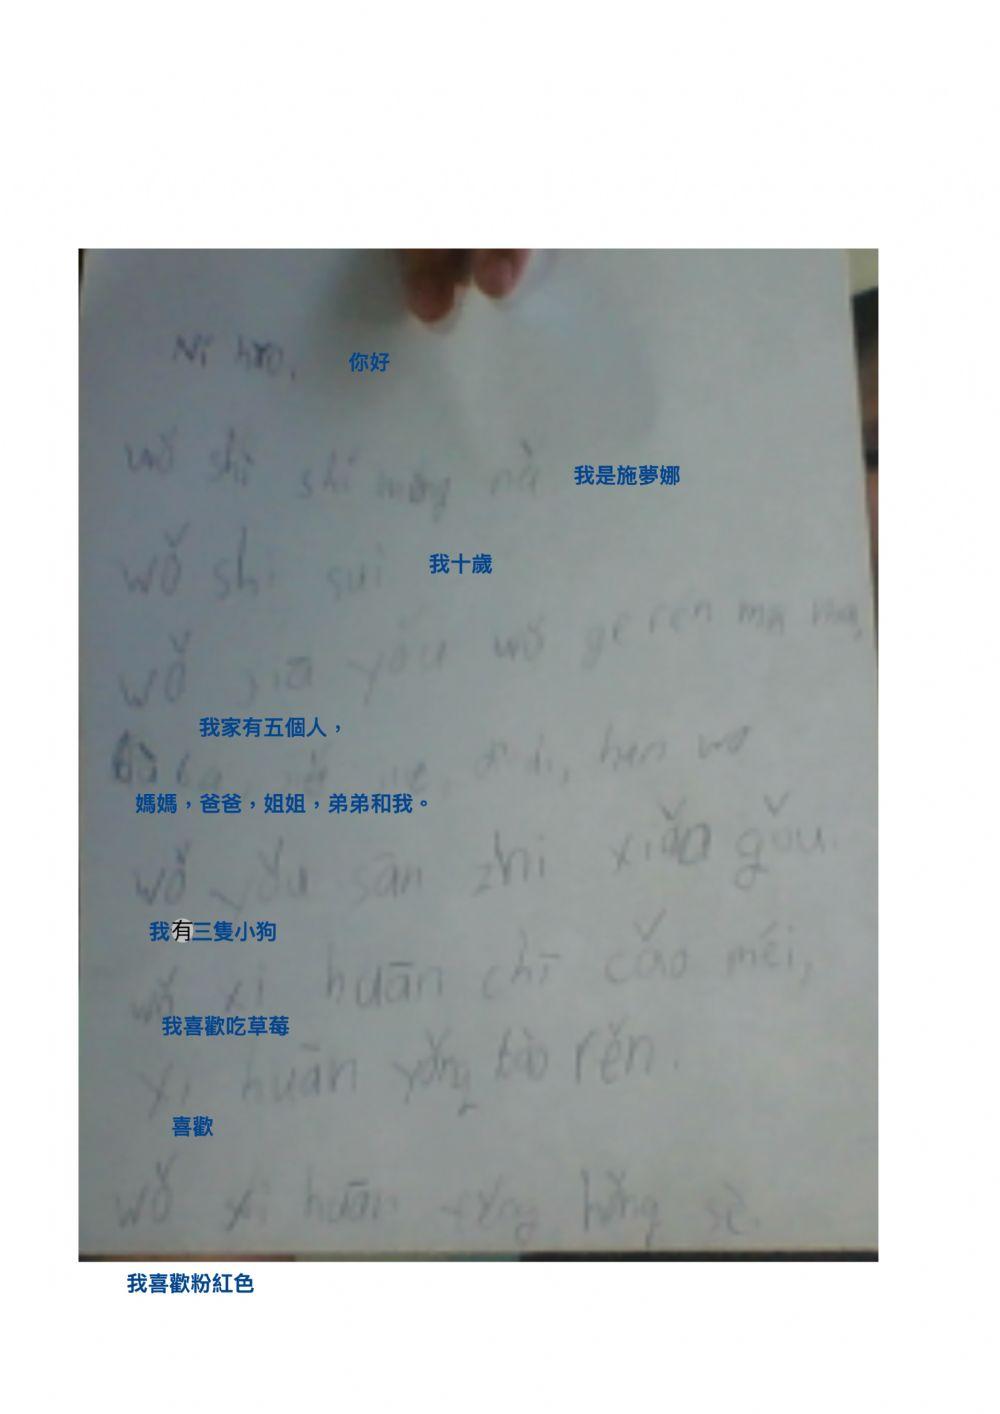 Ni hao, 你好
wǒ shì shī mèng nà 我是施夢娜
wǒ shí sui 我十歲
wǒ jiā yǒu wǔ ge rén ma ma,
我家有五個人，
Bà ba, jiě jie, dì di, hen wo
媽媽，爸爸，姐姐，弟弟和我。
wǒ yǒu sān zhi xiǎo gǒu.
我有三隻小狗
wǒ xi huān chī cǎo méi,
我喜歡吃草莓
xi huān yǒng bào rěn.
喜歡
wǒ xi huān hǒng sè.
我喜歡粉紅色